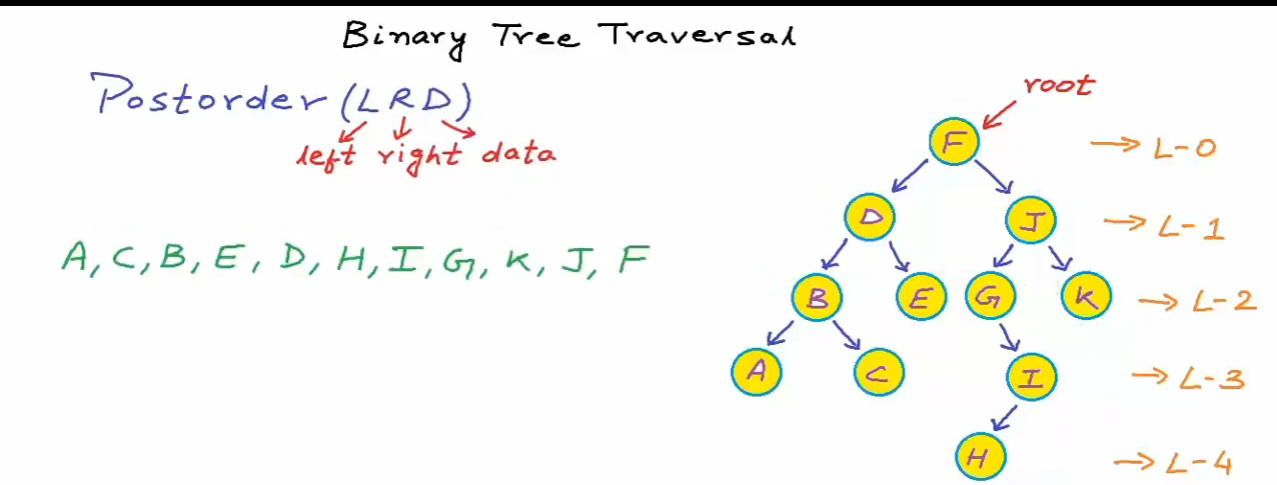 Binary Tree Traversal
Postorder (LRD)
left right data
A, C, B, E, D, H, I, G, K, J, F
root
F
→ L-0
D J
→ L-1
B E G K
→ L-2
A C I
→ L-3
H
→ L-4